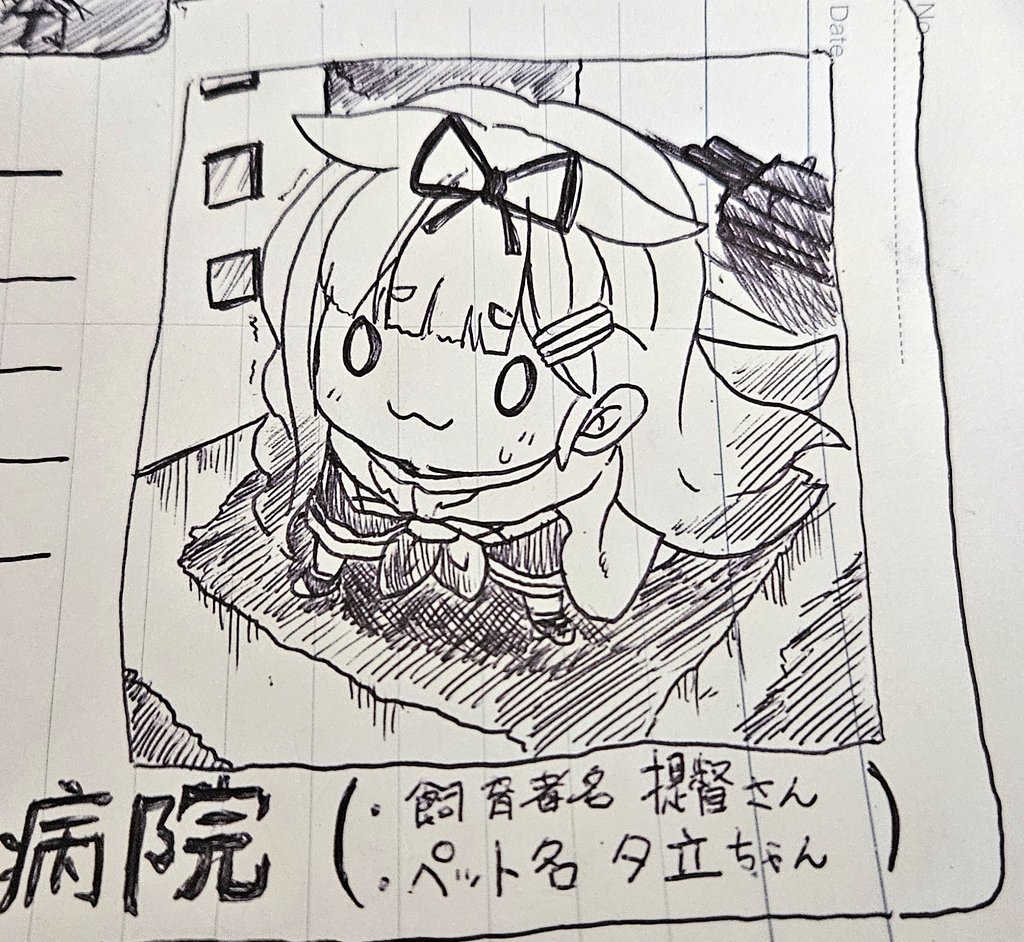 No.
Date
病院
・飼育者名 提督さん
・ペット名 夕立ちゃん